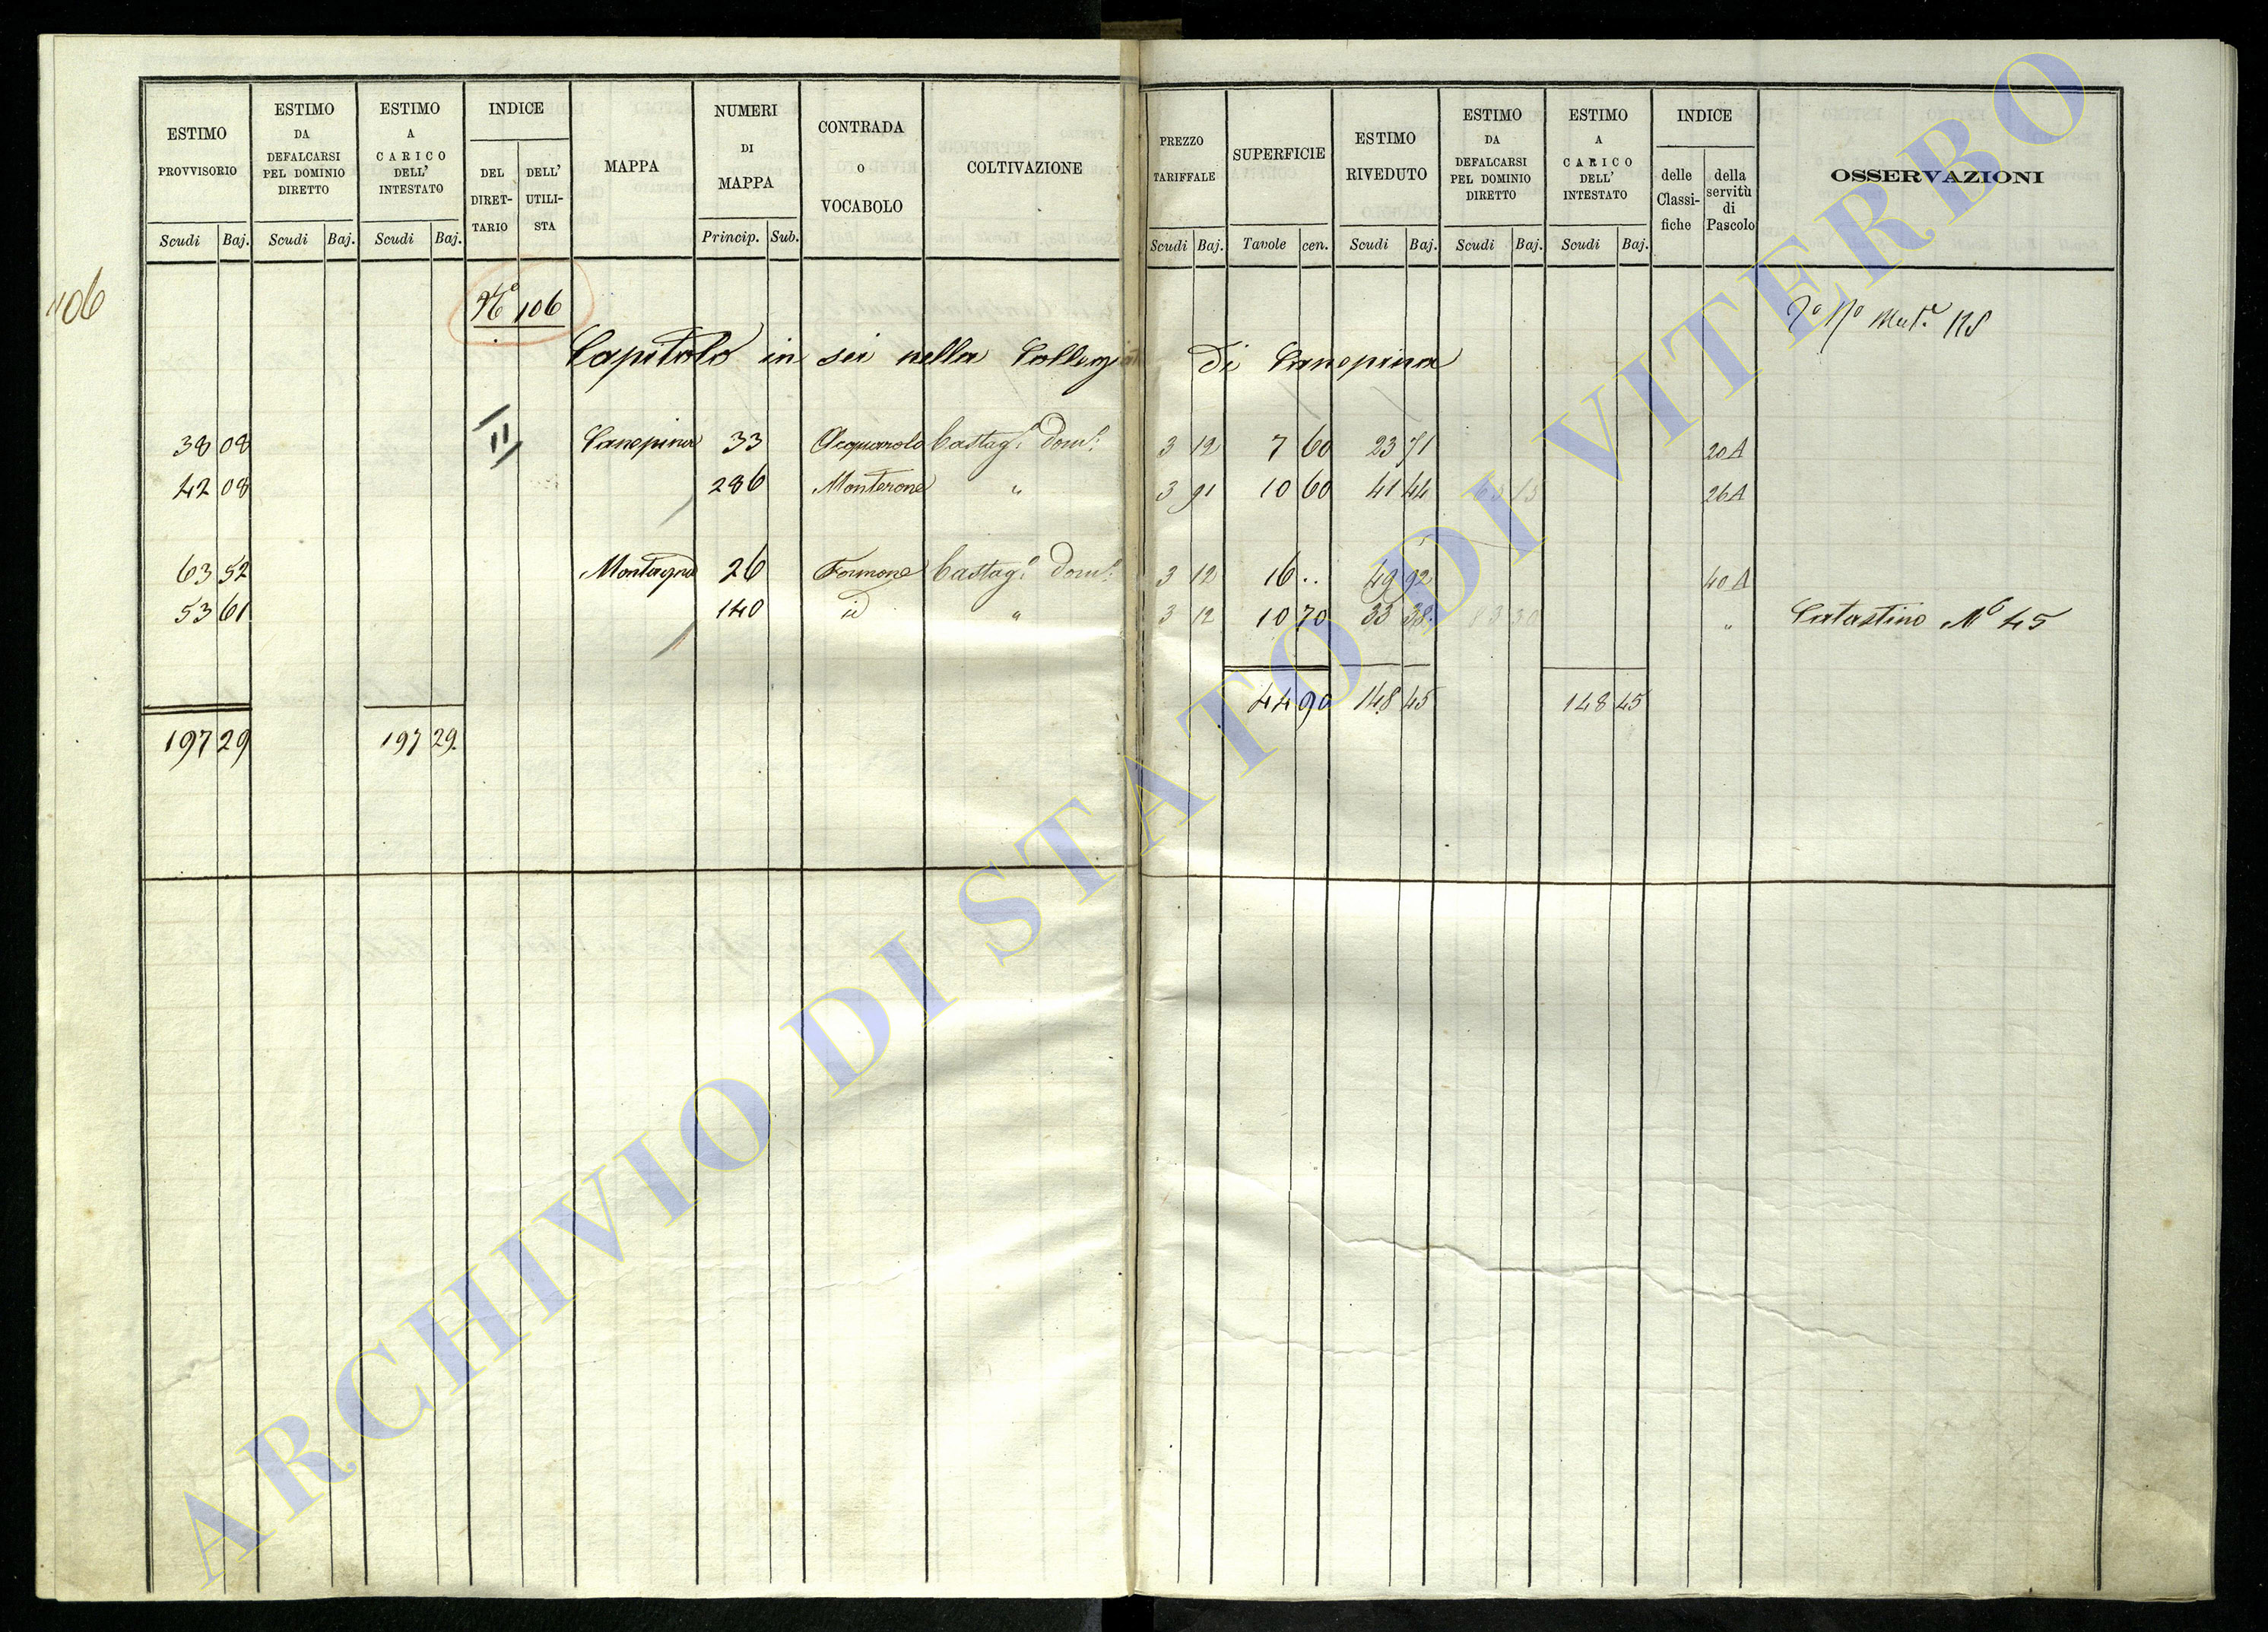 ESTIMO PROVVISORIO Scudi Baj.
ESTIMO DA DEFALCARSI PEL DOMINIO DIRETTO Scudi Baj.
ESTIMO A CARICO DELL' INTESTATO Scudi Baj.
INDICE DEL DIRETTARIO DELL' UTILISTA
MAPPA
NUMERI DI MAPPA Princip. Sub.
CONTRADA o VOCABOLO
COLTIVAZIONE
PREZZO TARIFFALE Scudi Baj.
SUPERFICIE Tavole cen.
ESTIMO RIVEDUTO Scudi Baj.
ESTIMO DA DEFALCARSI PEL DOMINIO DIRETTO Scudi Baj.
ESTIMO A CARICO DELL' INTESTATO Scudi Baj.
INDICE delle Classifiche della servitù di Pascolo
OSSERVAZIONI
106
Nº 106
Capitolo in sei nella Collegiata di Canepina
38 08 11 Canepina 33 Acquarolo Castag. Dom. 3 12 7 60 23 71 20 A
42 08 286 Monterone " 3 91 10 60 41 44 65 15 26 A
63 52 Montagna 26 Formone Castag. Dom. 3 12 16 .. 49 92 40 A
53 61 140 id " 3 12 10 70 33 38 83 30 " Catastino Nº 45
44 90 148 45 148 45
197 29 197 29
ARCHIVIO DI STATO DI VITERBO